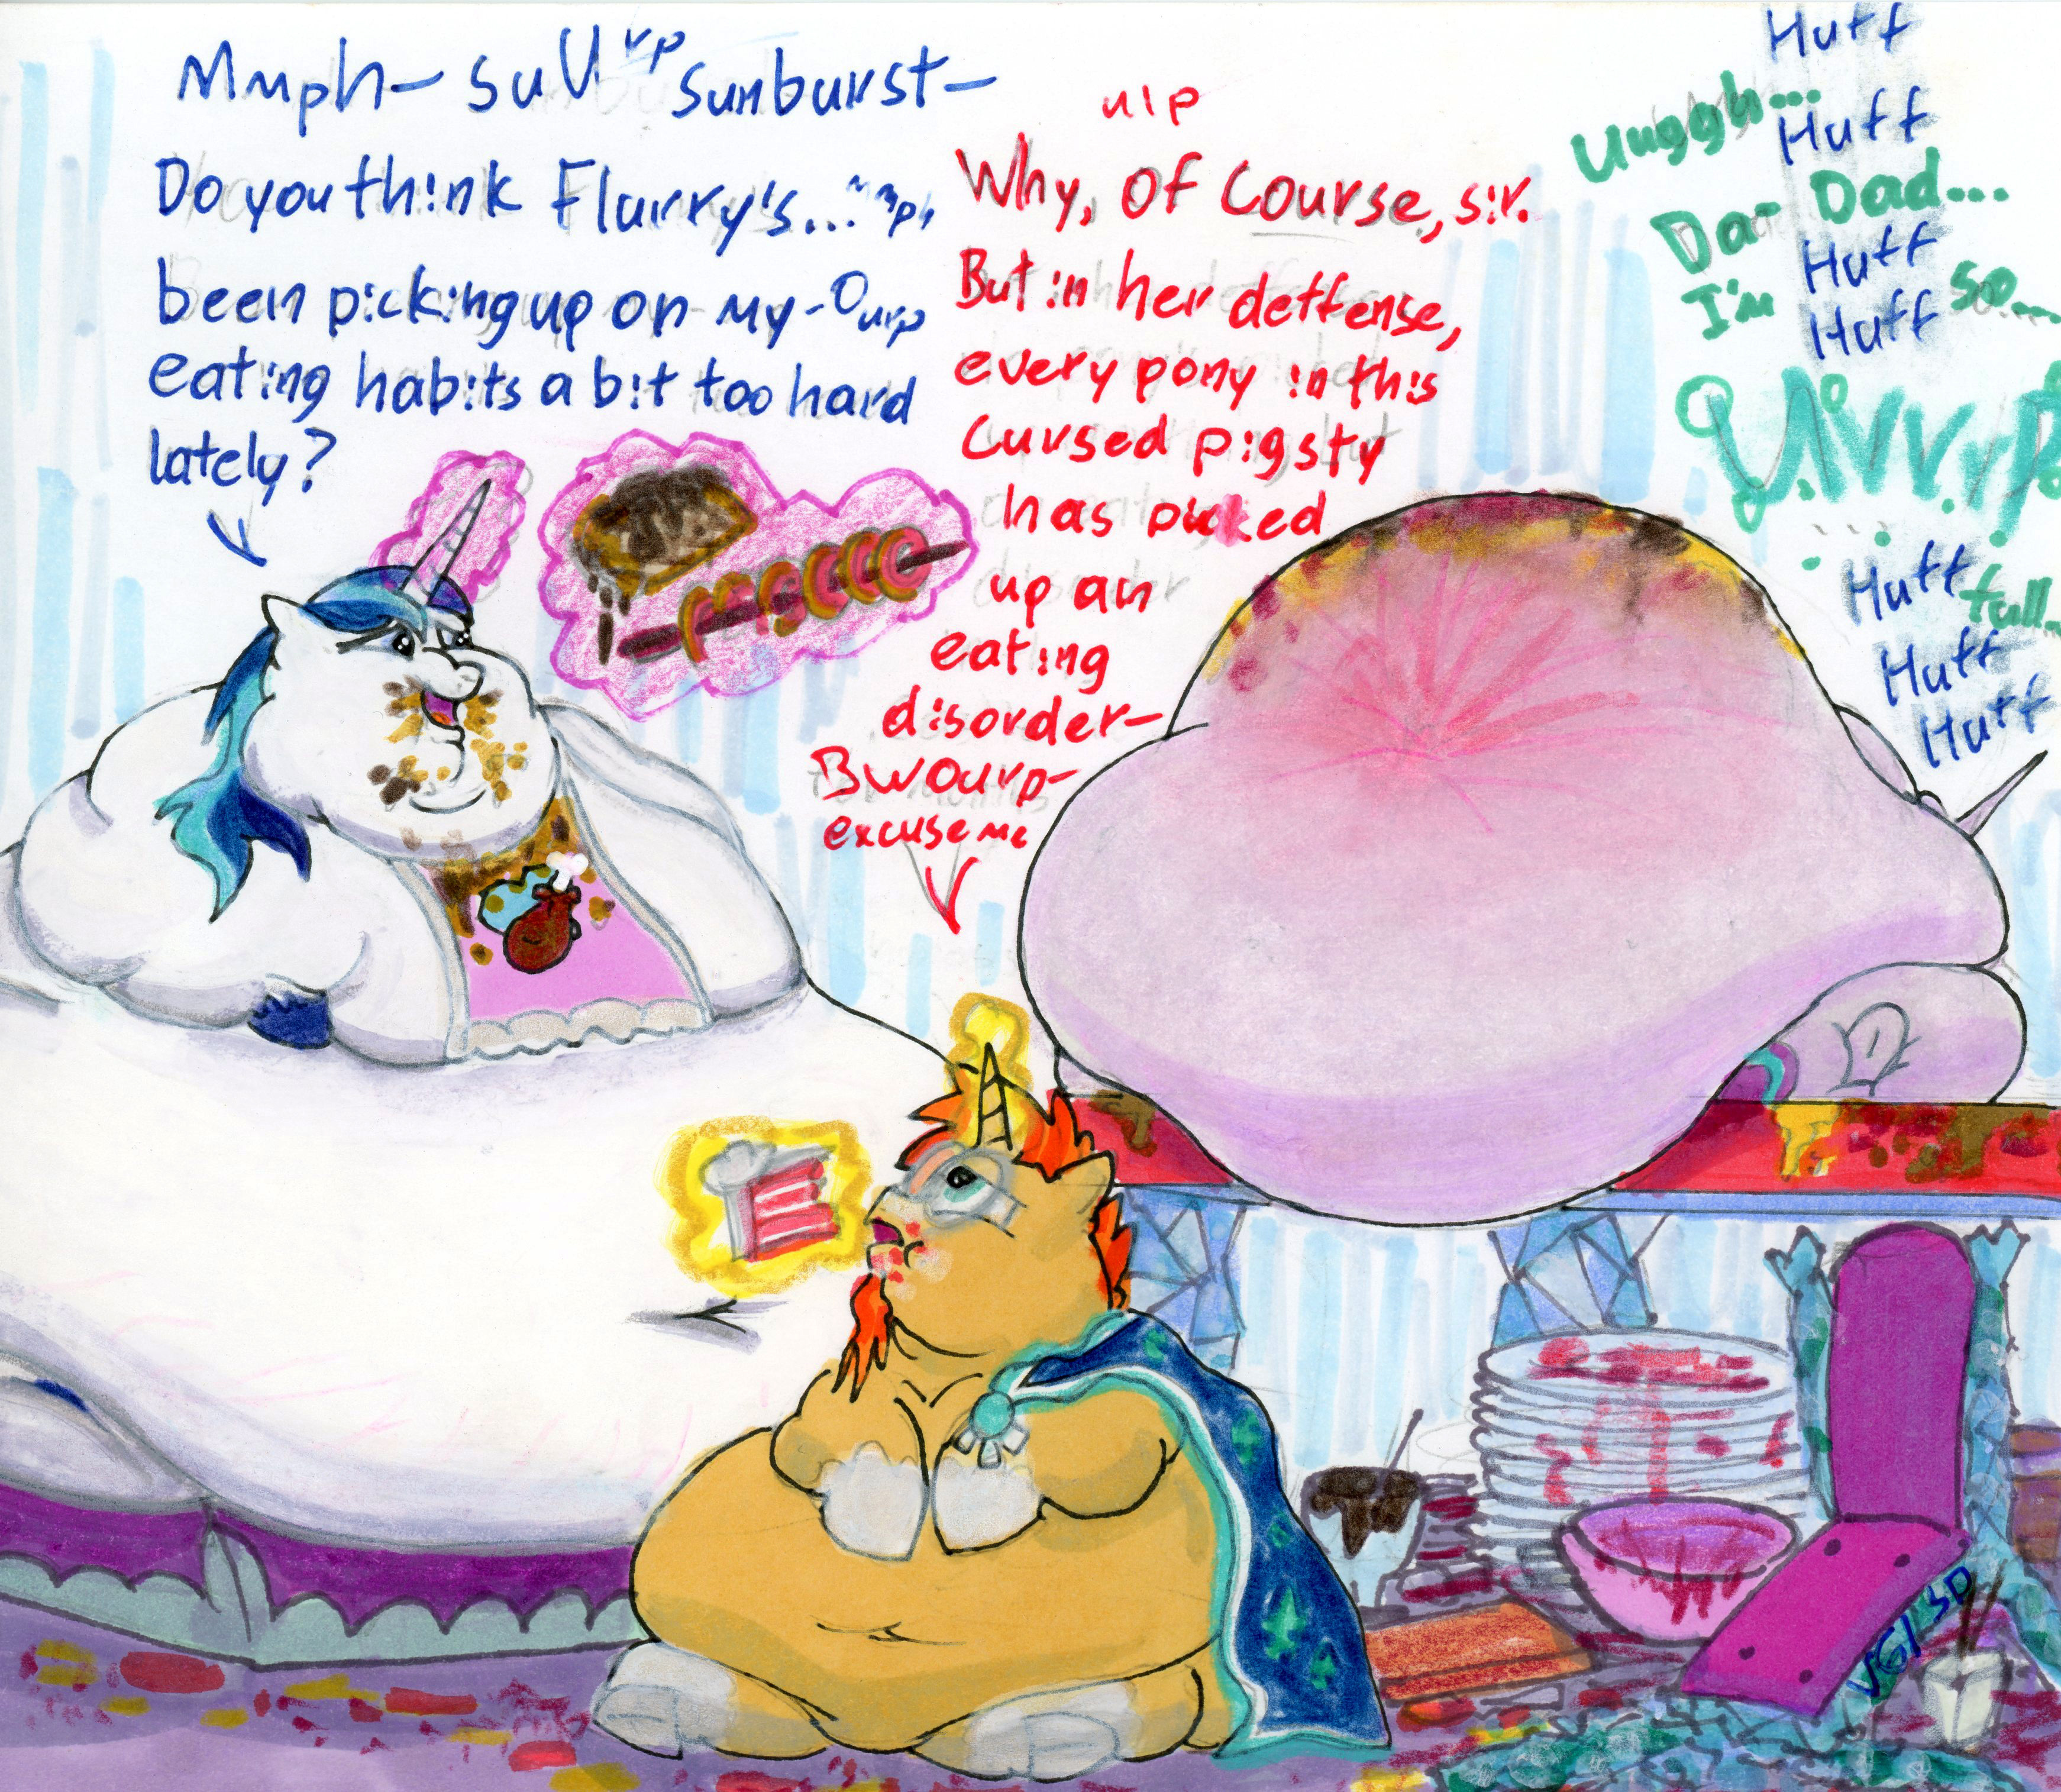 Mmph- suUrp sunburst-
Do you think Flurry's... mph,
been picking up on my -Ourp
eating habits a bit too hard
lately?
ulp
Why, Of Course, sir.
But in her deffense,
every pony in this
Cursed pigsty
has picked
up an
eating
disorder-
BWOurp-
excuse me
Huff
Uuggh...
Huff
Da- Dad...
Huff
I'm so...
Huff
Huff
full...
Huff
Huff